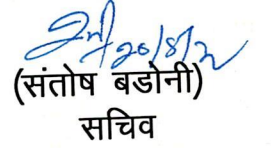 20/8/22
(संतोष बडोनी)
सचिव